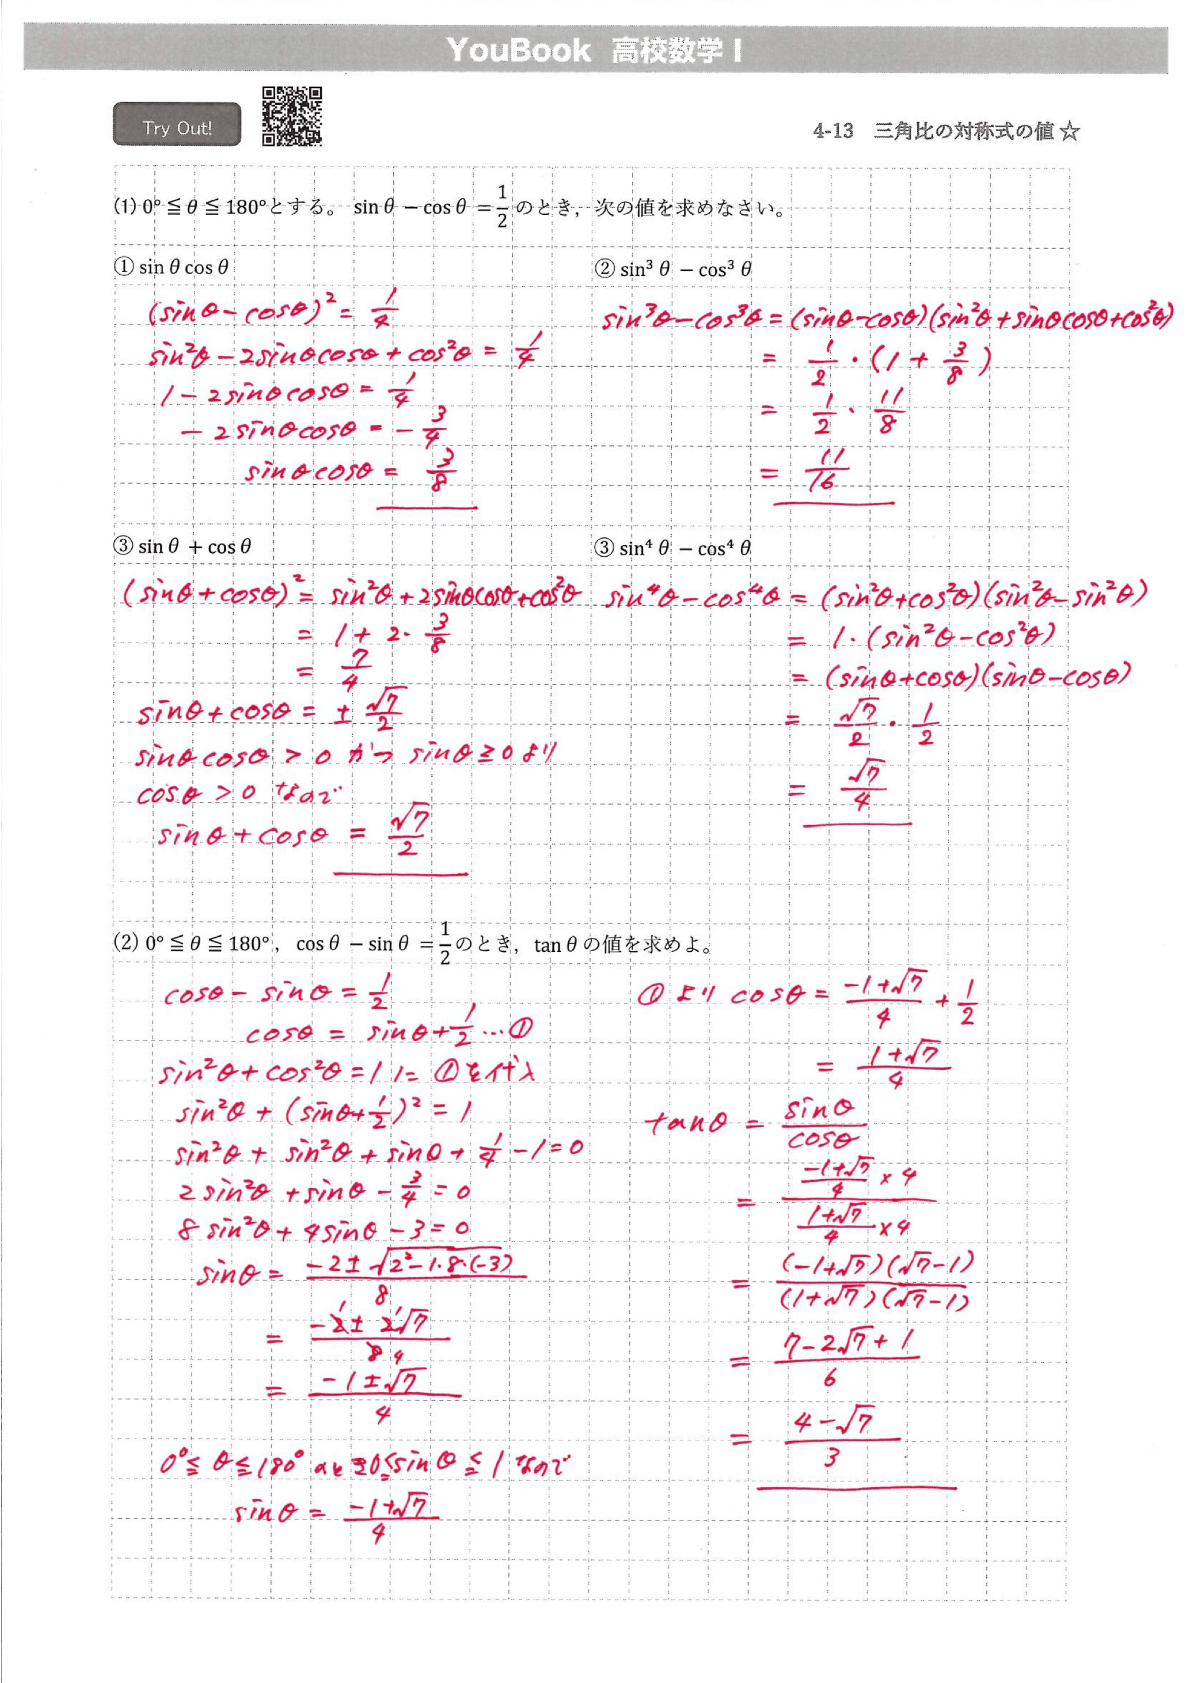 YouBook 高校数学 I
Try Out!
4-13 三角比の対称式の値☆
(1) 0° ≦ θ ≦ 180°とする。 sin θ − cos θ = 1/2 のとき, 次の値を求めなさい。
① sin θ cos θ
(sinθ − cosθ)² = 1/4
sin²θ − 2sinθcosθ + cos²θ = 1/4
1 − 2sinθcosθ = 1/4
− 2sinθcosθ = − 3/4
sinθcosθ = 3/8
② sin³ θ − cos³ θ
sin³θ − cos³θ = (sinθ − cosθ)(sin²θ + sinθcosθ + cos²θ)
= 1/2 · (1 + 3/8)
= 1/2 · 11/8
= 11/16
③ sin θ + cos θ
(sinθ + cosθ)² = sin²θ + 2sinθcosθ + cos²θ
= 1 + 2 · 3/8
= 7/4
sinθ + cosθ = ± √7/2
sinθcosθ > 0 かつ sinθ ≧ 0 より
cosθ > 0 なので
sinθ + cosθ = √7/2
③ sin⁴ θ − cos⁴ θ
sin⁴θ − cos⁴θ = (sin²θ + cos²θ)(sin²θ − sin²θ)
= 1 · (sin²θ − cos²θ)
= (sinθ + cosθ)(sinθ − cosθ)
= √7/2 · 1/2
= √7/4
(2) 0° ≦ θ ≦ 180°, cos θ − sin θ = 1/2 のとき, tan θ の値を求めよ。
cosθ − sinθ = 1/2
cosθ = sinθ + 1/2 …①
sin²θ + cos²θ = 1 に ①を代入
sin²θ + (sinθ + 1/2)² = 1
sin²θ + sin²θ + sinθ + 1/4 − 1 = 0
2sin²θ + sinθ − 3/4 = 0
8sin²θ + 4sinθ − 3 = 0
sinθ = (−2 ± √(2² − 1·8·(−3)))/8
= (−2 ± 2√7)/8
= (−1 ± √7)/4
0° ≦ θ ≦ 180° のとき 0 ≦ sinθ ≦ 1 なので
sinθ = (−1 + √7)/4
①より cosθ = (−1 + √7)/4 + 1/2
= (1 + √7)/4
tanθ = sinθ/cosθ
= ((−1 + √7)/4 × 4)/((1 + √7)/4 × 4)
= (−1 + √7)(√7 − 1)/(1 + √7)(√7 − 1)
= (7 − 2√7 + 1)/6
= (4 − √7)/3